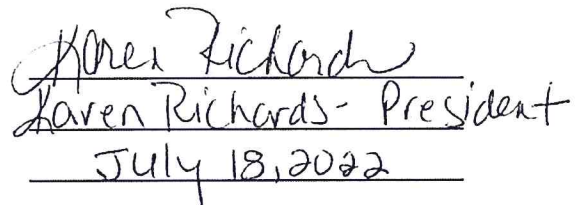 Karen Richards
Karen Richards - President
July 18, 2022